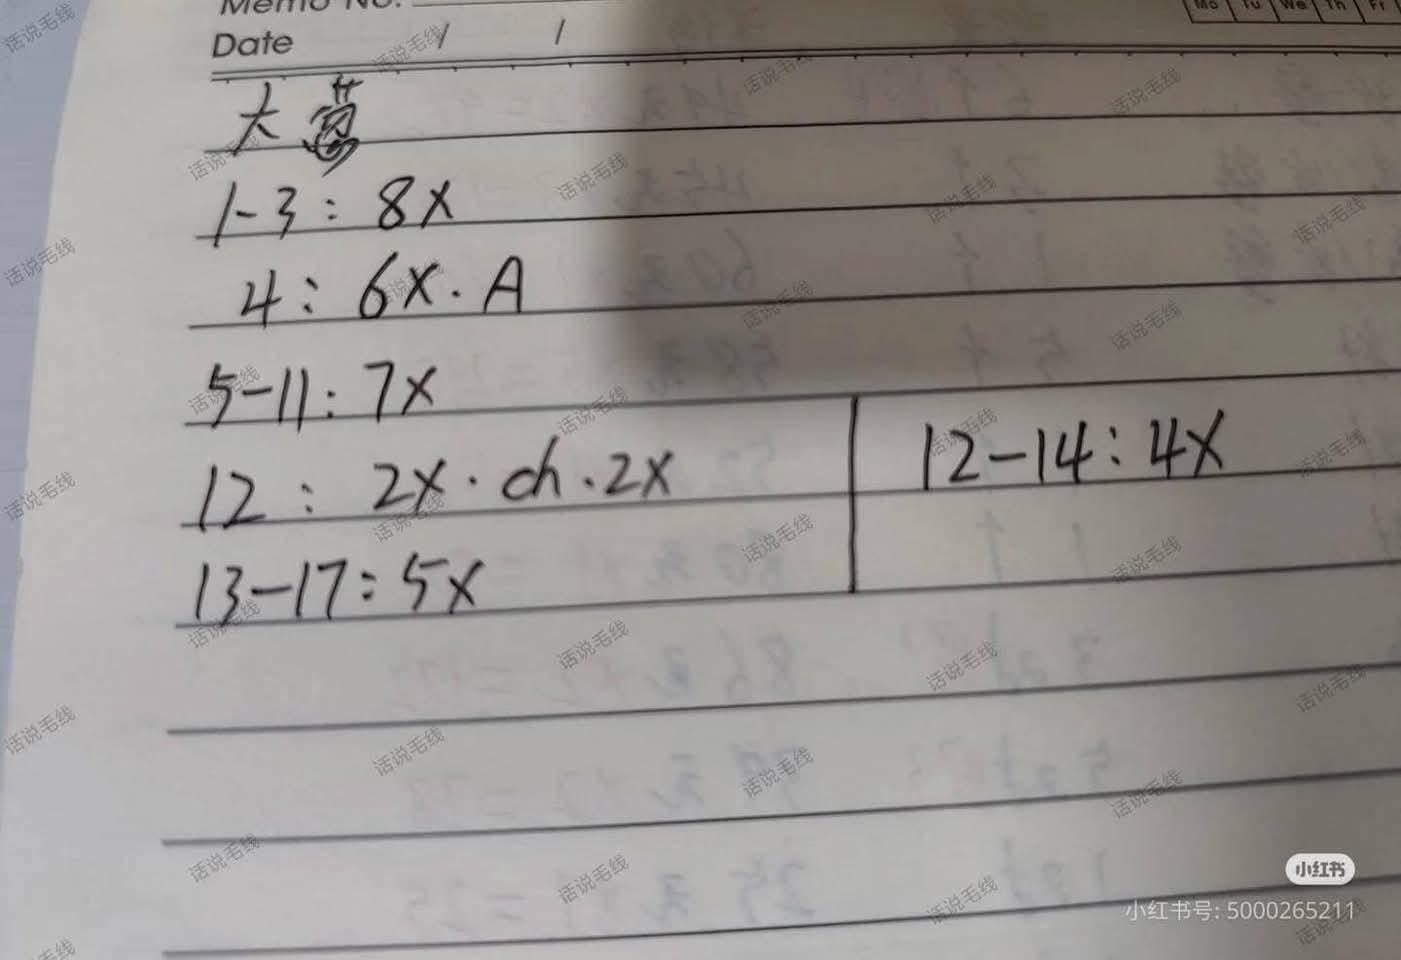 Memo No.
Mo Tu We Th Fr
Date / /
大
1-3: 8X
4: 6X.A
5-11: 7X
12: 2X.ch.2X
12-14: 4X
13-17: 5X
话说毛线
小红书
小红书号: 5000265211